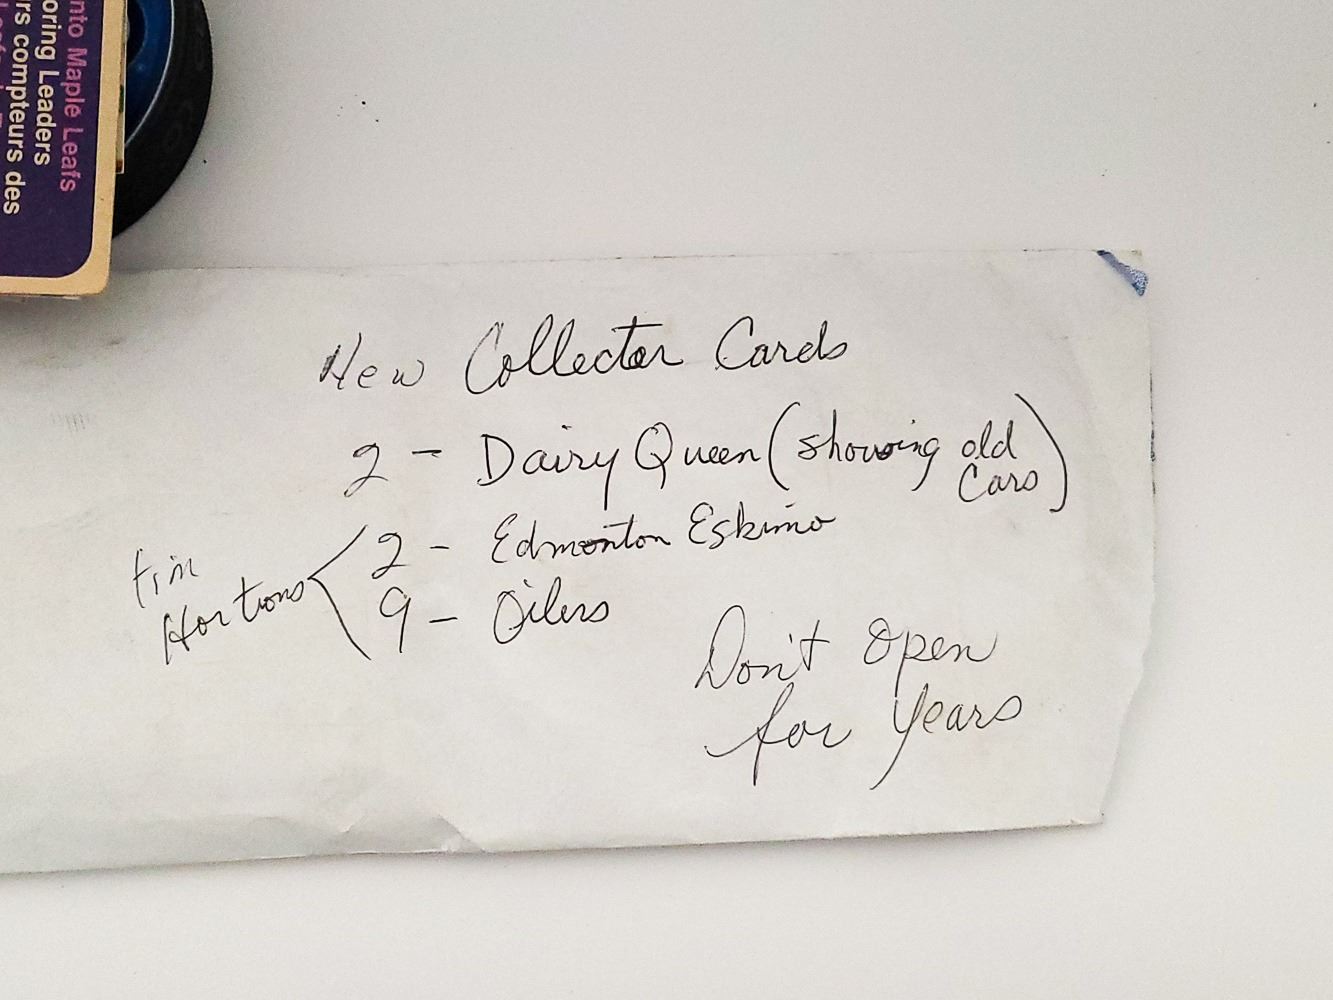 nto Maple Leafs
oring Leaders
rs compteurs des
New Collector Cards
2 - Dairy Queen (showing old
Cars)
Tim
Hortons
2 - Edmonton Eskimo
9 - Oilers
Don't Open
for Years